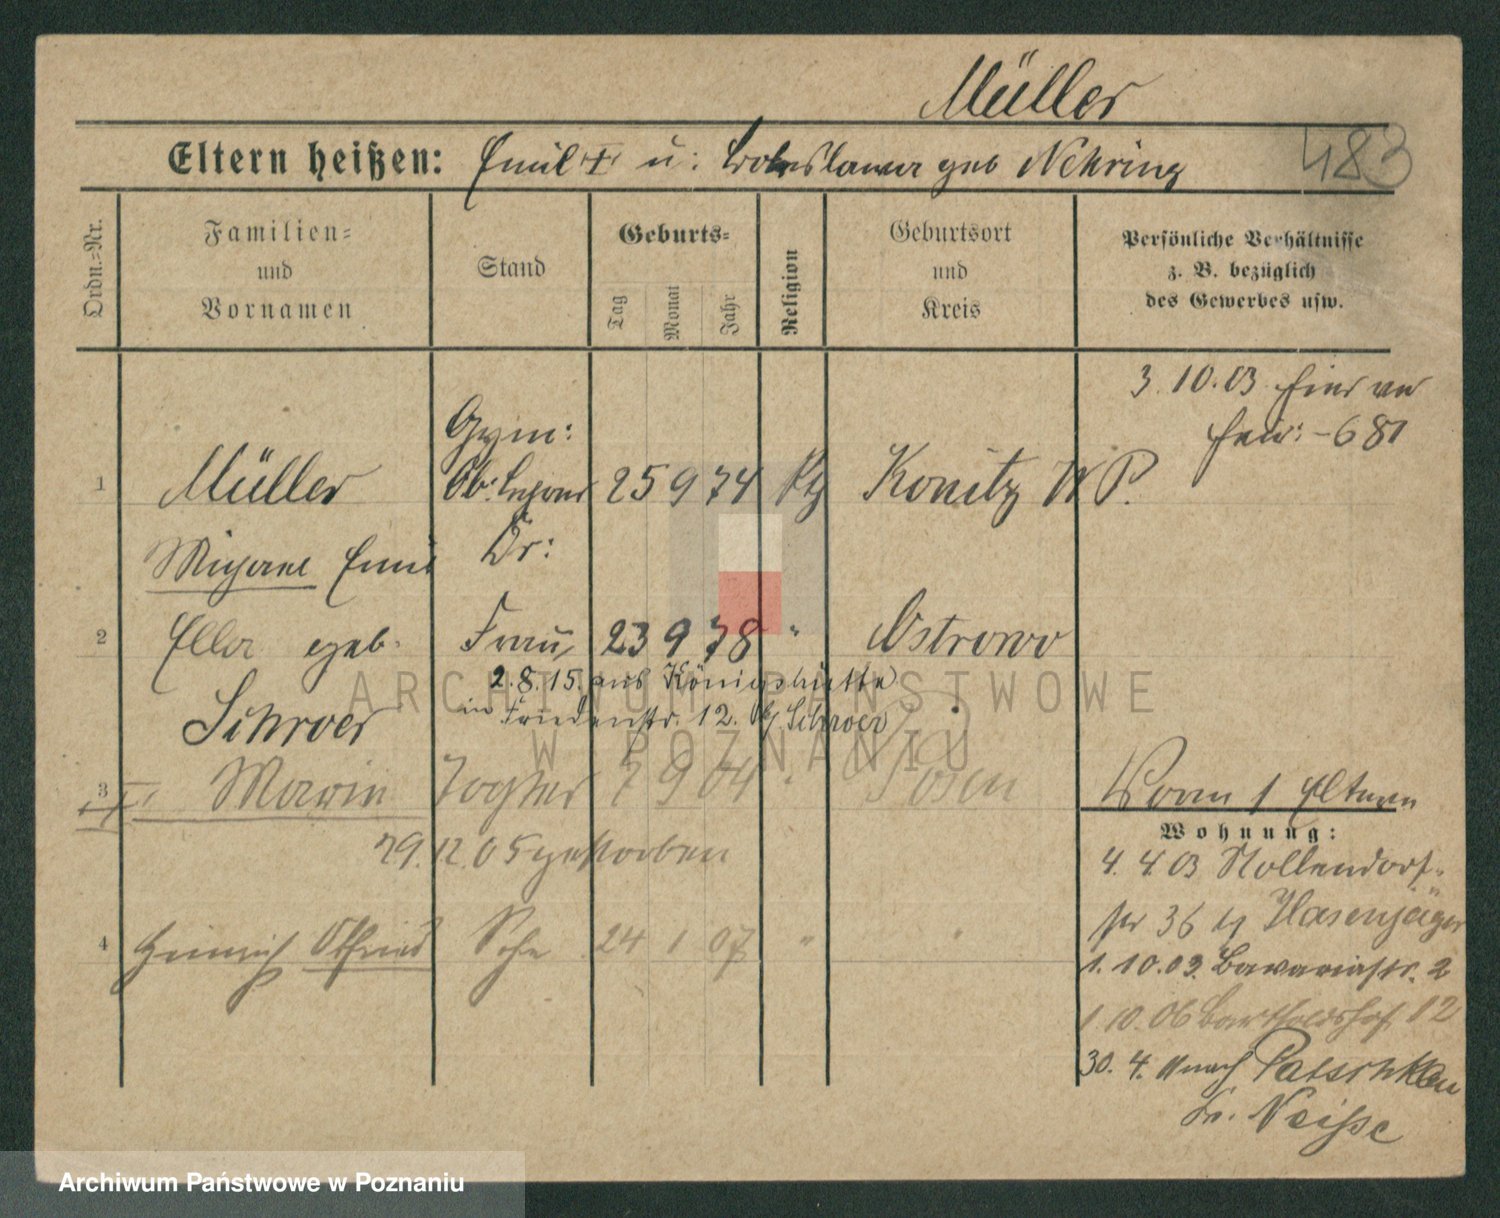 Müller
Eltern heißen: Emil + u: Boleslawa geb Nehring
483
Ordn.-Nr.
Familien- und Vornamen
Stand
Geburts-
Tag
Monat
Jahr
Religion
Geburtsort und Kreis
Persönliche Verhältnisse
z. B. bezüglich
des Gewerbes usw.
3. 10. 03
- 681
Gym:
1 Müller Ob: Lehrer 25 9 74 Kth Konitz W P.
Dr:
Emil
2 Ella geb. Frau 23 9 78 " Ostrowo
2. 8. 15. aus Königshütte
Schroer
in Friedenstr. 12. b/ Schroer
3 Maria Tochter 7 9 04 " Posen
29. 12. 05 gestorben
Vorm 1 Eltern
Wohnung:
4. 4. 03 Nollendorf-
str 36 b/ Hasenjäger
4 Heinrich Otfried Sohn 24 1 07 " "
1. 10. 03. Bavariastr. 2
1 10. 06 Bartholdshof 12
30. 4. 11 nach Patschkau
Kr. Neisse
ARCHIWUM PAŃSTWOWE
W POZNANIU
Archiwum Państwowe w Poznaniu